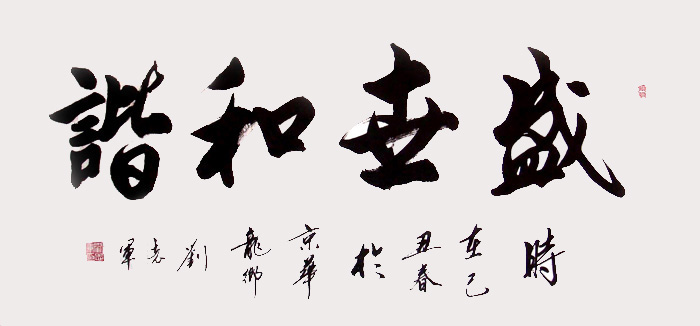 盛世和諧
時
在己
丑春
於
京華
龍鄉
劉
軍